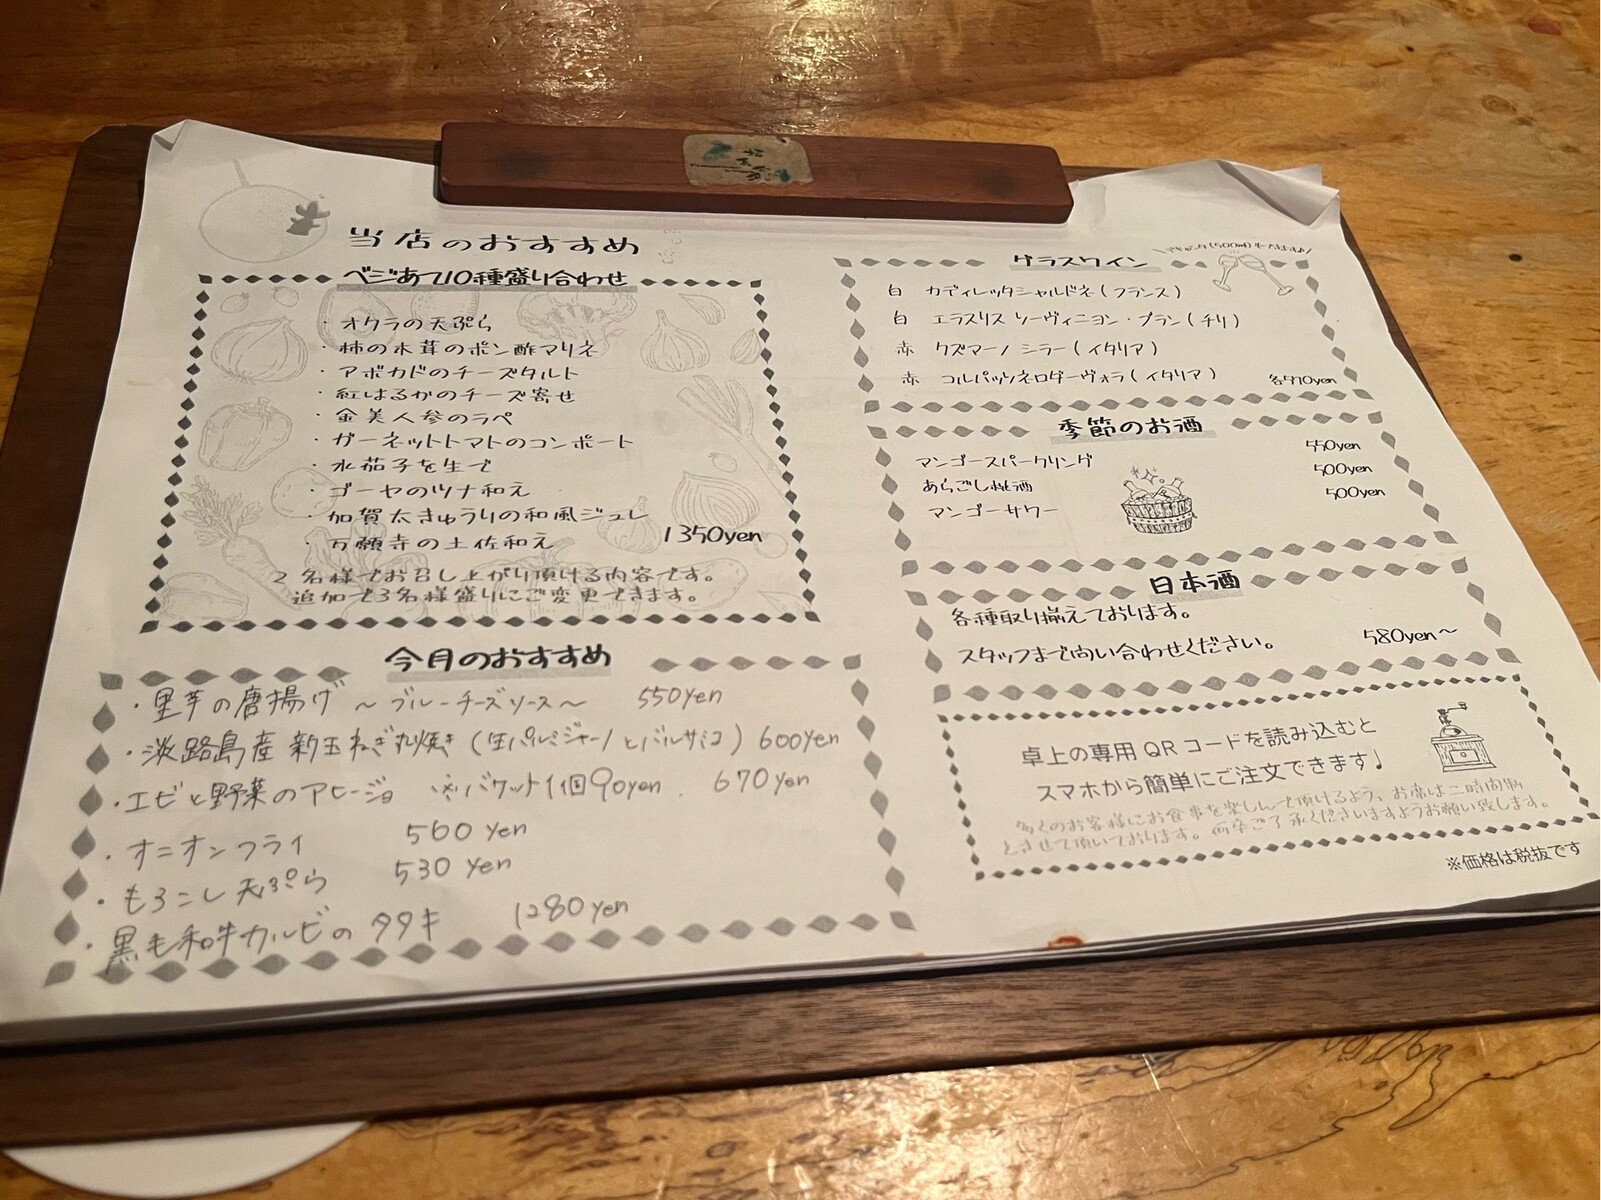 当店のおすすめ
ベジあて10種盛り合わせ
・オクラの天ぷら
・柿の木茸のポン酢マリネ
・アボカドのチーズタルト
・紅はるかのチーズ寄せ
・金美人参のラペ
・ガーネットトマトのコンポート
・水茄子を生で
・ゴーヤのツナ和え
・加賀太きゅうりの和風ジュレ
・万願寺の土佐和え 1350yen
2名様でお召し上がり頂ける内容です。
追加で3名様盛りにご変更できます。
今月のおすすめ
・里芋の唐揚げ ～ブルーチーズソース～ 550yen
・淡路島産 新玉ねぎ丸焼き (生パルミジャーノとバルサミコ) 600yen
・エビと野菜のアヒージョ ※バケット1個90yen 670yen
・オニオンフライ 560yen
・もろこし天ぷら 530yen
・黒毛和牛カルビのタタキ 1280yen
グラスワイン
白 カディレッタシャルドネ(フランス)
白 エラスリス ソーヴィニヨン・ブラン(チリ)
赤 クズマーノ シラー(イタリア)
赤 コルパッソネロダーヴォラ(イタリア) 各970yen
季節のお酒
マンゴースパークリング 550yen
あらごし桃酒 500yen
マンゴーサワー 500yen
日本酒
各種取り揃えております。
スタッフまで問い合わせください。 580yen～
卓上の専用QRコードを読み込むと
スマホから簡単にご注文できます♩
多くのお客様にお食事を楽しんで頂けるよう、お席は二時間制
とさせて頂いております。何卒ご了承くださいますようお願い致します。
※価格は税抜です